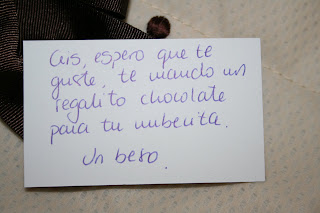 Cris, espero que te
guste, te mando un
regalito chocolate
para tu nubecita.
Un beso.